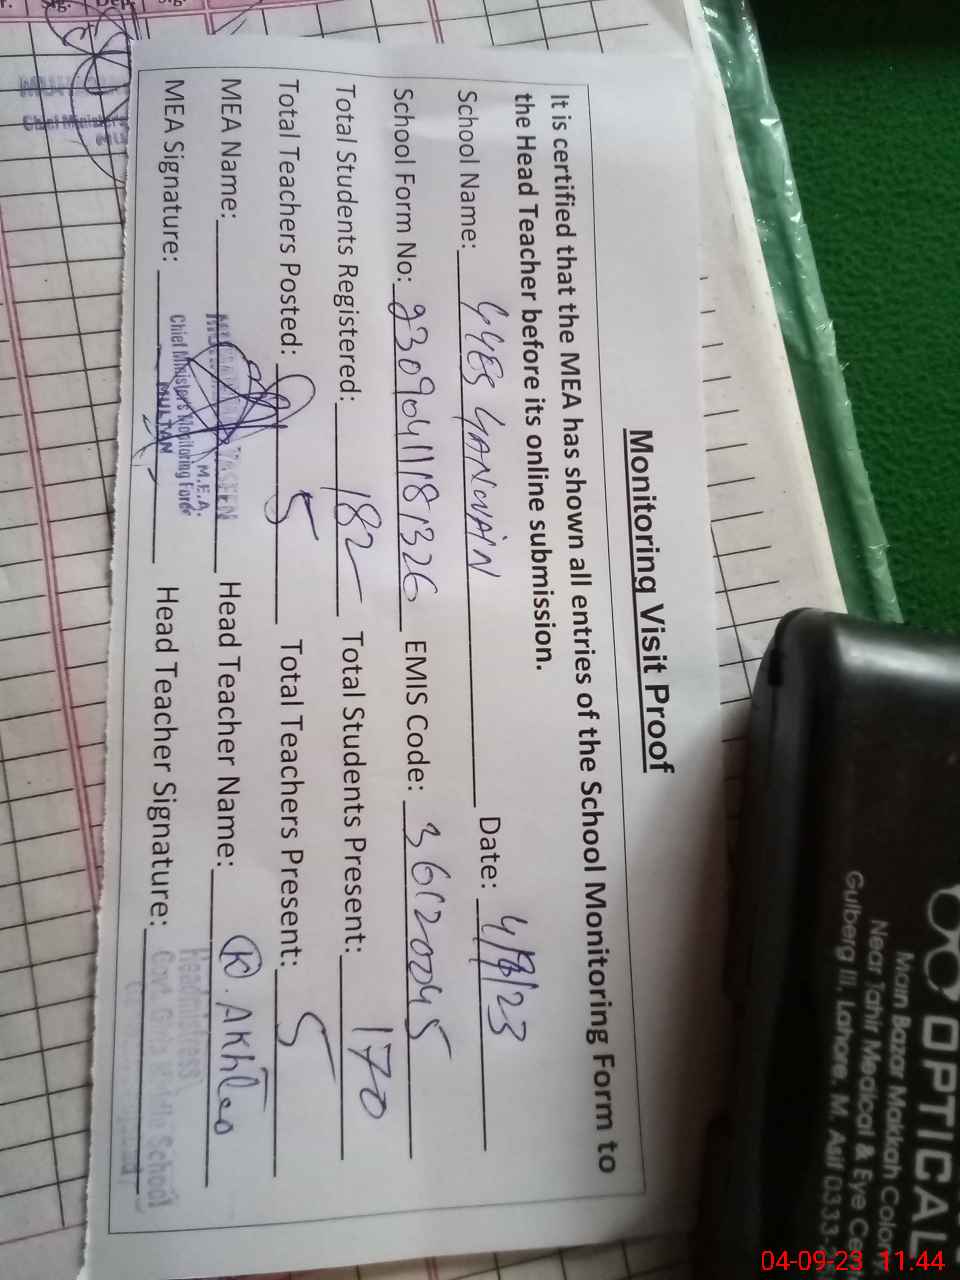 Monitoring Visit Proof
It is certified that the MEA has shown all entries of the School Monitoring Form to
the Head Teacher before its online submission.
School Name: GGES Date: 4/9/23
School Form No: EMIS Code: 36120045
Total Students Registered: 182 Total Students Present: 170
Total Teachers Posted: 5 Total Teachers Present: 5
MEA Name: Head Teacher Name: K. Akhtar
M.E.A.
Chief Minister's Monitoring Force
MULTAN
MEA Signature: Head Teacher Signature:
Headmistress
School
OPTICAL
Main Bazar Makkah Colony
Near Tahir Medical & Eye
Gulberg III, Lahore. M. Asif 0333-
04-09-23 11:44